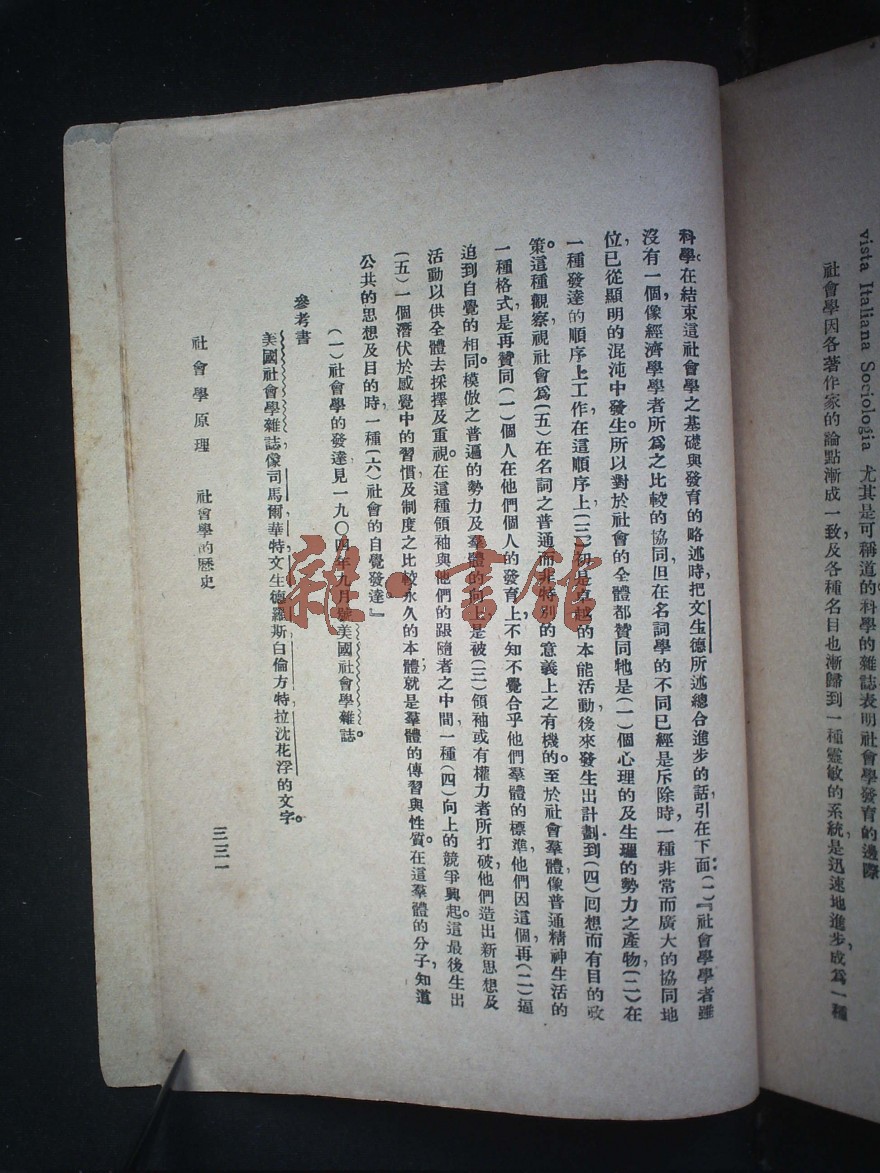 vista Italiana Sociologia 尤其是可稱道的科學的雜誌表明社會學發育的邊際
社會學因各著作家的論點漸成一致及各種名目也漸歸到一種靈敏的系統，是迅速地進步，成爲一種
科學。在結束這社會學之基礎與發育的略述時，把文生德所述總合進步的話，引在下面：(一)『社會學學者雖
沒有一個，像經濟學學者所爲之比較的協同，但在名詞學的不同已經是斥除時，一種非常而廣大的協同地
位，已從顯明的混沌中發生。所以對於社會的全體都贊同牠是(一)個心理的及生理的勢力之產物，(二)在
一種發達的順序上工作，在這順序上(三)初是卓越的本能活動，後來發生出計劃，到(四)回想而有目的政
策。這種觀察視社會爲(五)在名詞之普通而非特別的意義上之有機的。至於社會羣體，像普通精神生活的
一種格式，是再贊同(一)個人在他們個人的發育上，不知不覺合乎他們羣體的標準，他們因這個再(二)逼
迫到自覺的相同。模倣之普遍的勢力及羣體的向上是被(三)領袖或有權力者所打破，他們造出新思想及
活動以供全體去採擇及重視。在這種領袖與他們的跟隨者之中間，一種(四)向上的競爭興起。這最後生出
(五)一個潛伏於感覺中的習慣及制度之比較永久的本體，就是羣體的傳習與性質。在這羣體的分子，知道
公共的思想及目的時，一種(六)社會的自覺發達』
(一)社會學的發達見一九〇四年九月號美國社會學雜誌。
參考書
美國社會學雜誌，像司馬爾，華特，文生德，羅斯，白倫方特，拉沈花浮的文字。
社會學原理 社會學的歷史
三三一
雜·書館